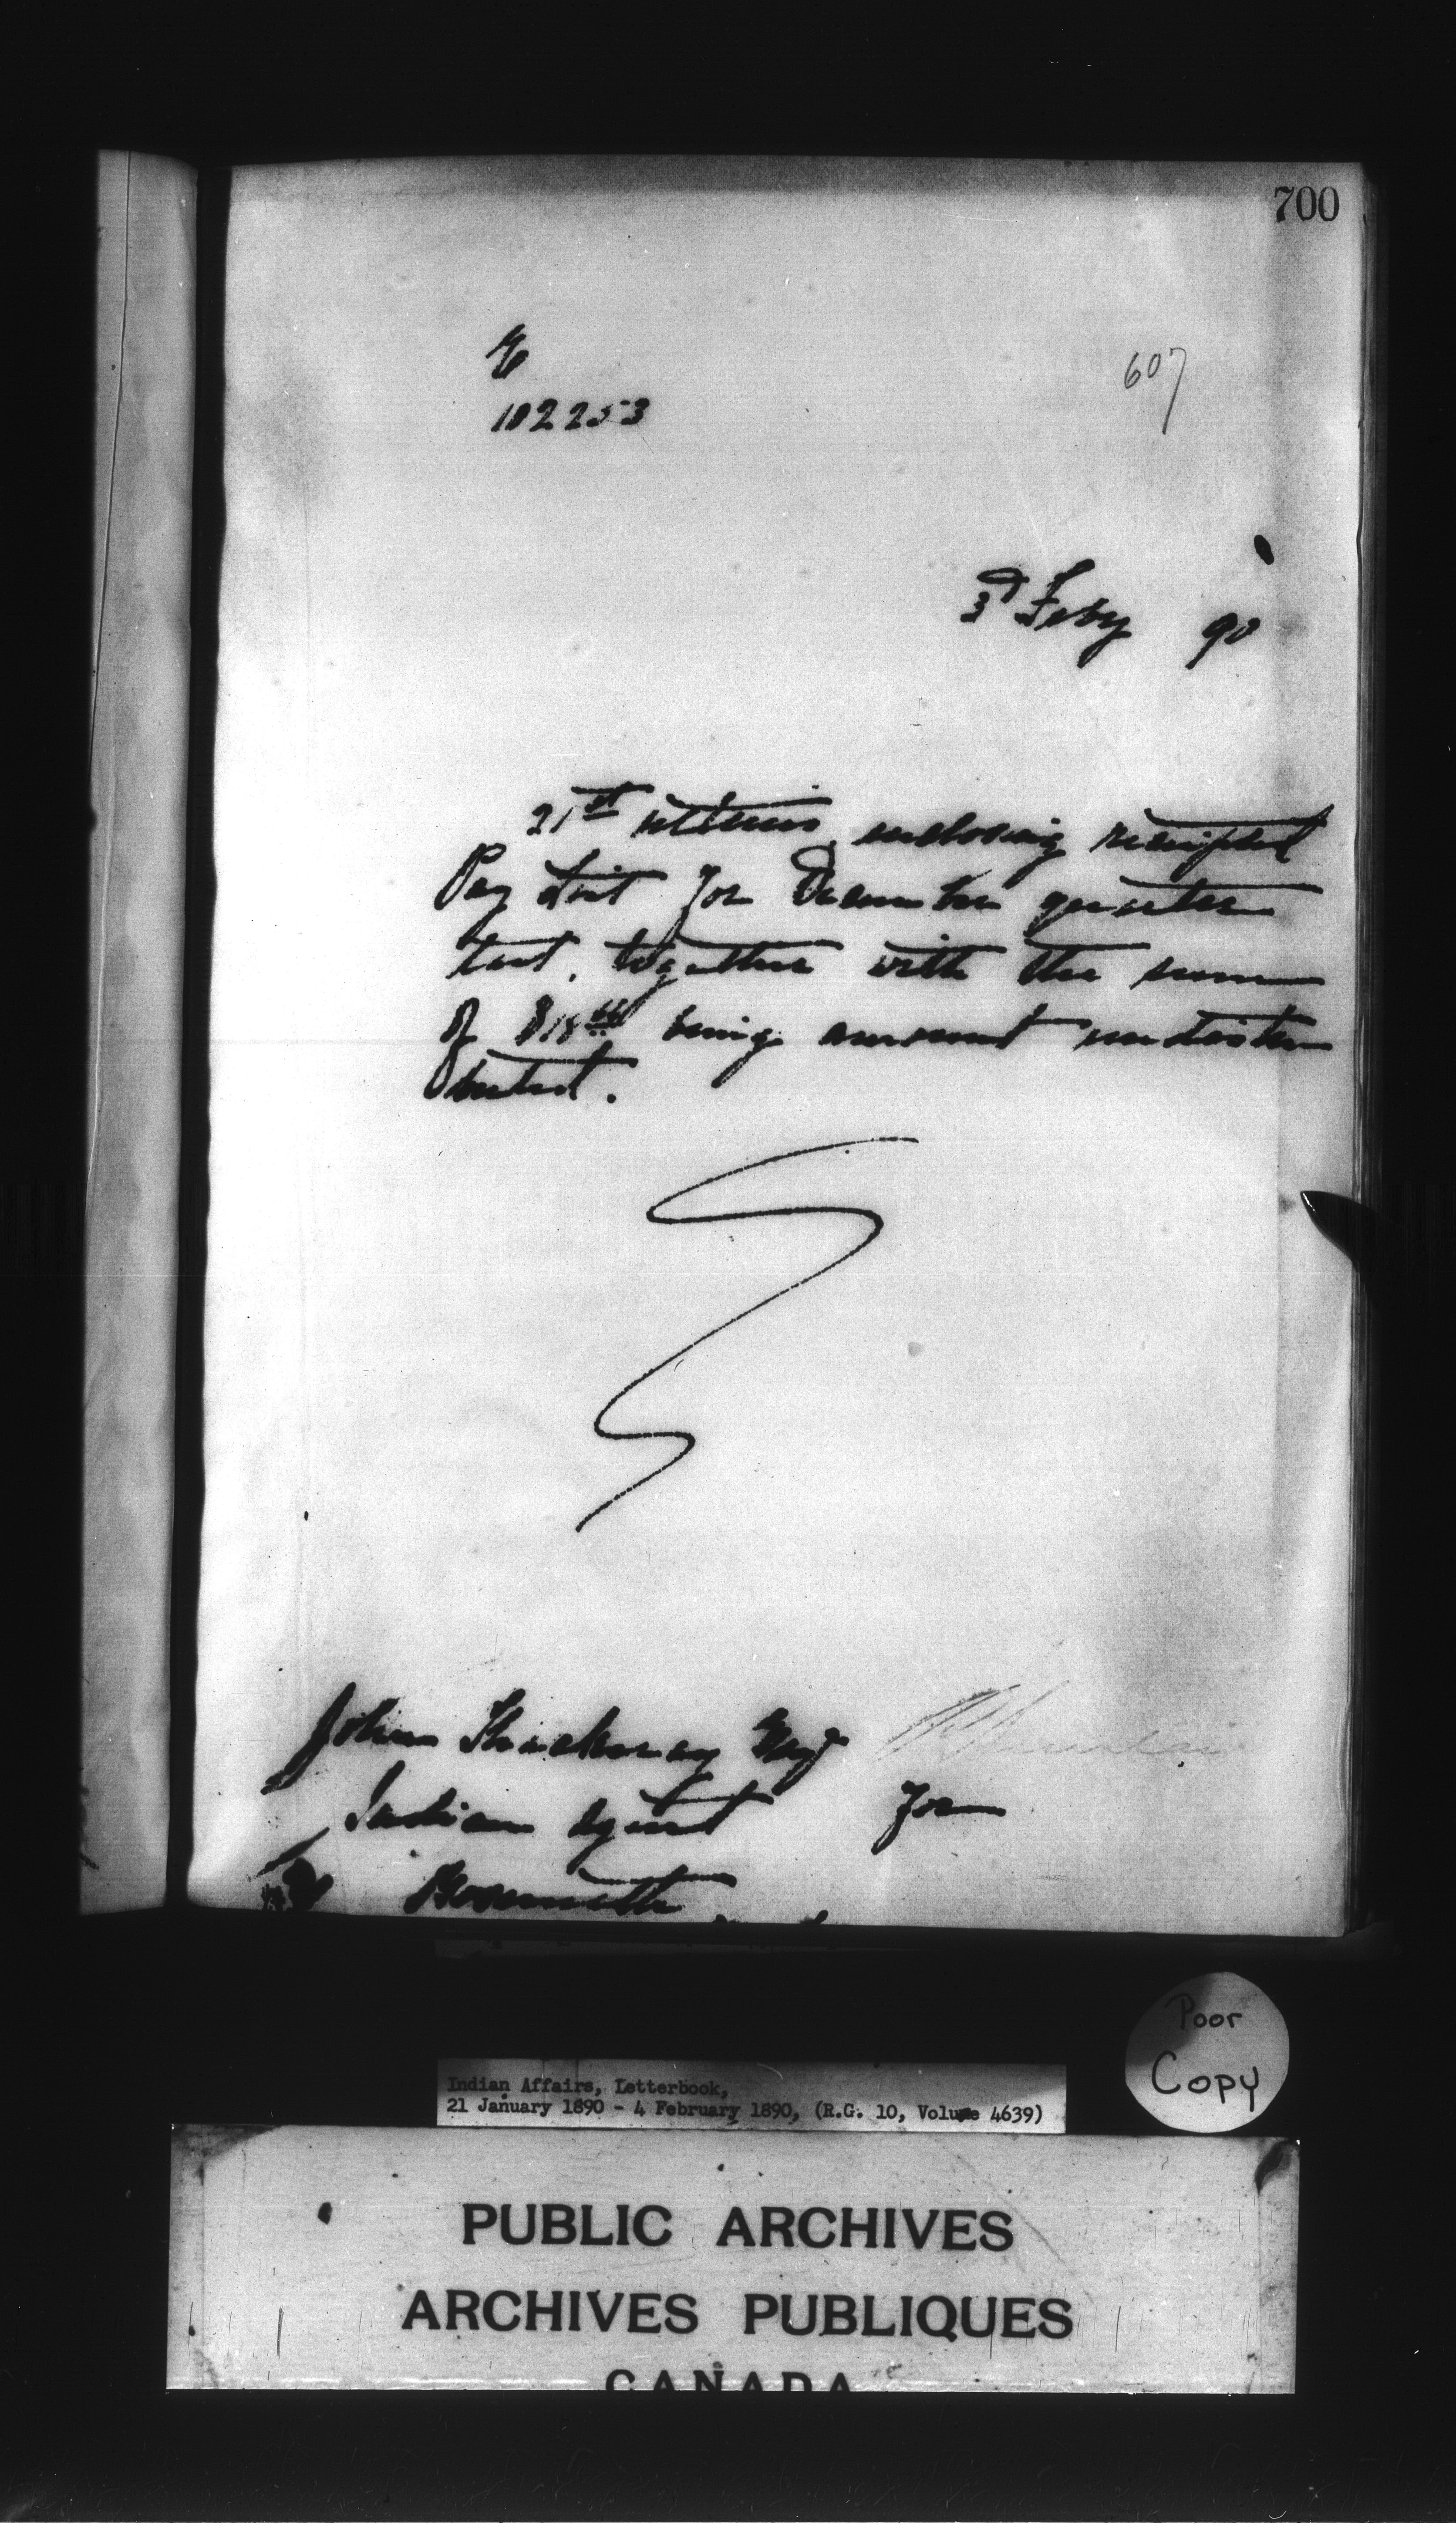 700
607
102253
3d Feby 90
21st ultimo, enclosing receipted
Pay List for December quarter
last, together with the sum
of $18 66 being amount undistri
buted.
John Thackeray Esqr
Indian Agent for
Roseneath
Poor
Copy
Indian Affairs, Letterbook,
21 January 1890 - 4 February 1890, (R.G. 10, Volume 4639)
PUBLIC ARCHIVES
ARCHIVES PUBLIQUES
CANADA